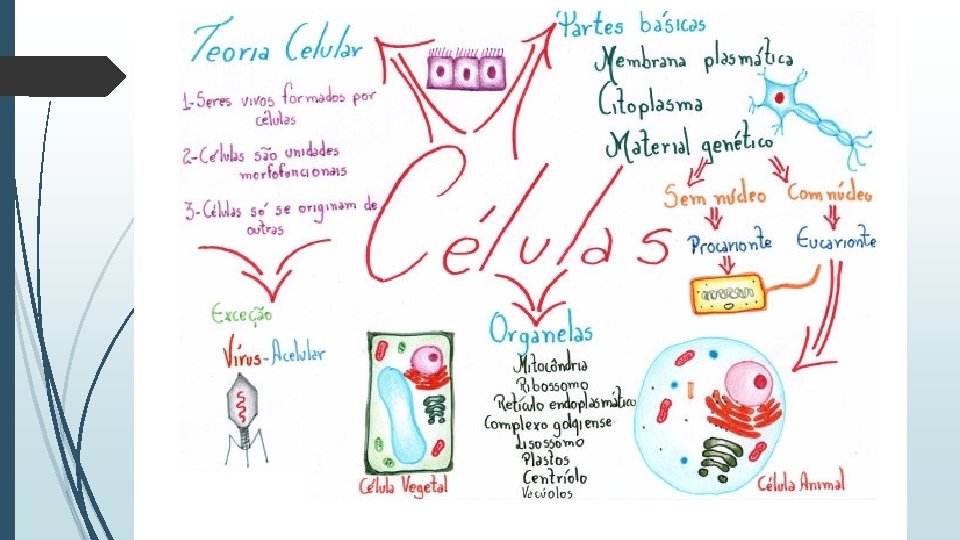 Teoria Celular
1-Seres vivos formados por
células
2-Células são unidades
morfofuncionais
3-Células só se originam de
outras
Exceção
Vírus-Acelular
Células
Partes básicas
Membrana plasmática
Citoplasma
Material genético
Sem núcleo Com núcleo
Procarionte Eucarionte
Organelas
Mitocôndria
Ribossomo
Retículo endoplasmático
Complexo golgiense
Lisossomo
Plastos
Centríolo
Vacúolos
Célula Vegetal
Célula Animal